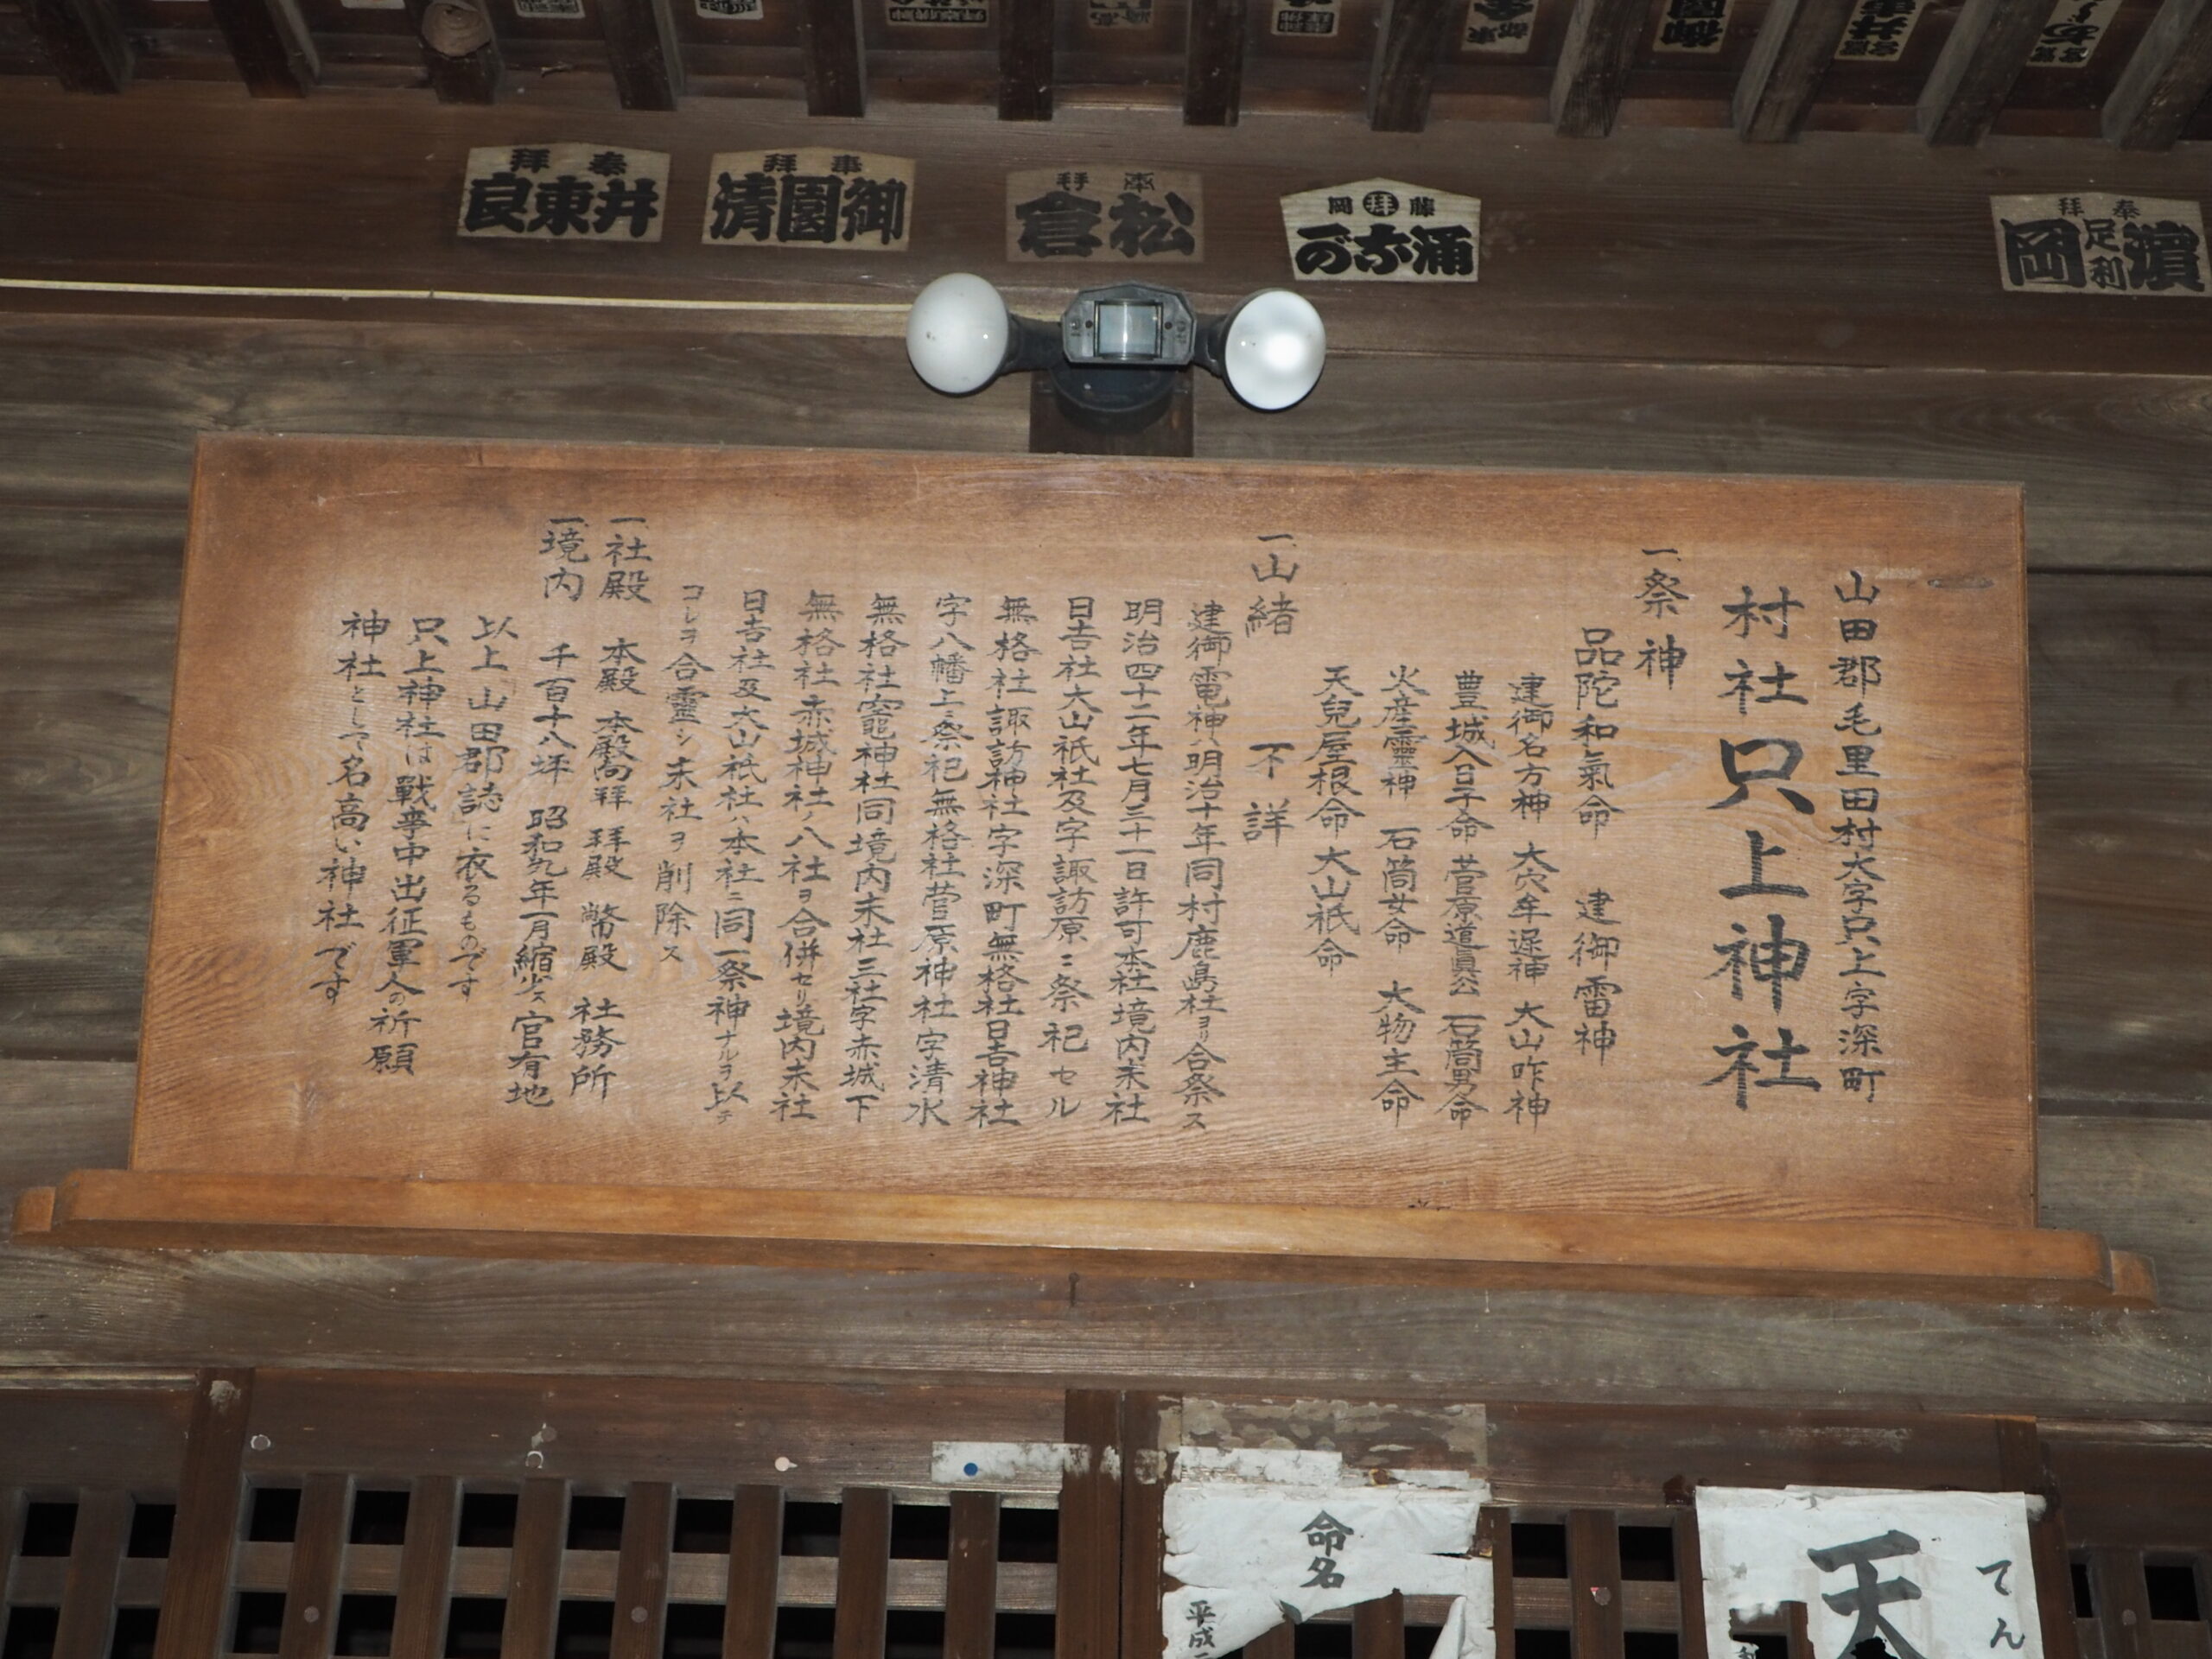 山田郡毛里田村大字只上字深町
村社只上神社
一、祭神
品陀和氣命 建御雷神
建御名方神 大穴牟遅神 大山咋神
豊城入日子命 菅原道真公 石筒男命
火産霊神 石筒女命 大物主命
天兒屋根命 大山祇命
一、山緒 不詳
建御電神ハ明治十年同村鹿島社ヨリ合祭ス
明治四十二年七月三十一日許可本社境内末社
日吉社大山祇社及字諏訪原ニ祭祀セル
無格社諏訪神社字深町無格社日吉神社
字八幡上ニ祭祀無格社菅原神社字清水
無格社竈神社同境内末社三社字赤城下
無格社赤城神社ノ八社ヲ合併セリ境内末社
日吉社及大山祇社ハ本社ニ同一祭神ナルヲ以テ
コレヲ合霊シ末社ヲ削除ス
一、社殿 本殿 本殿向拝 拝殿 幣殿 社務所
一、境内 千百十八坪 昭和九年一月縮少ス官有地
以上「山田郡誌」に衣るものです
只上神社は戦争中出征軍人の祈願
神社として名高い神社です
奉拝
井東良
奉拝
御園清
奉拝
松倉
藤拝岡
涌かづ
奉拝
濱足利岡
命名
平成
てん
天